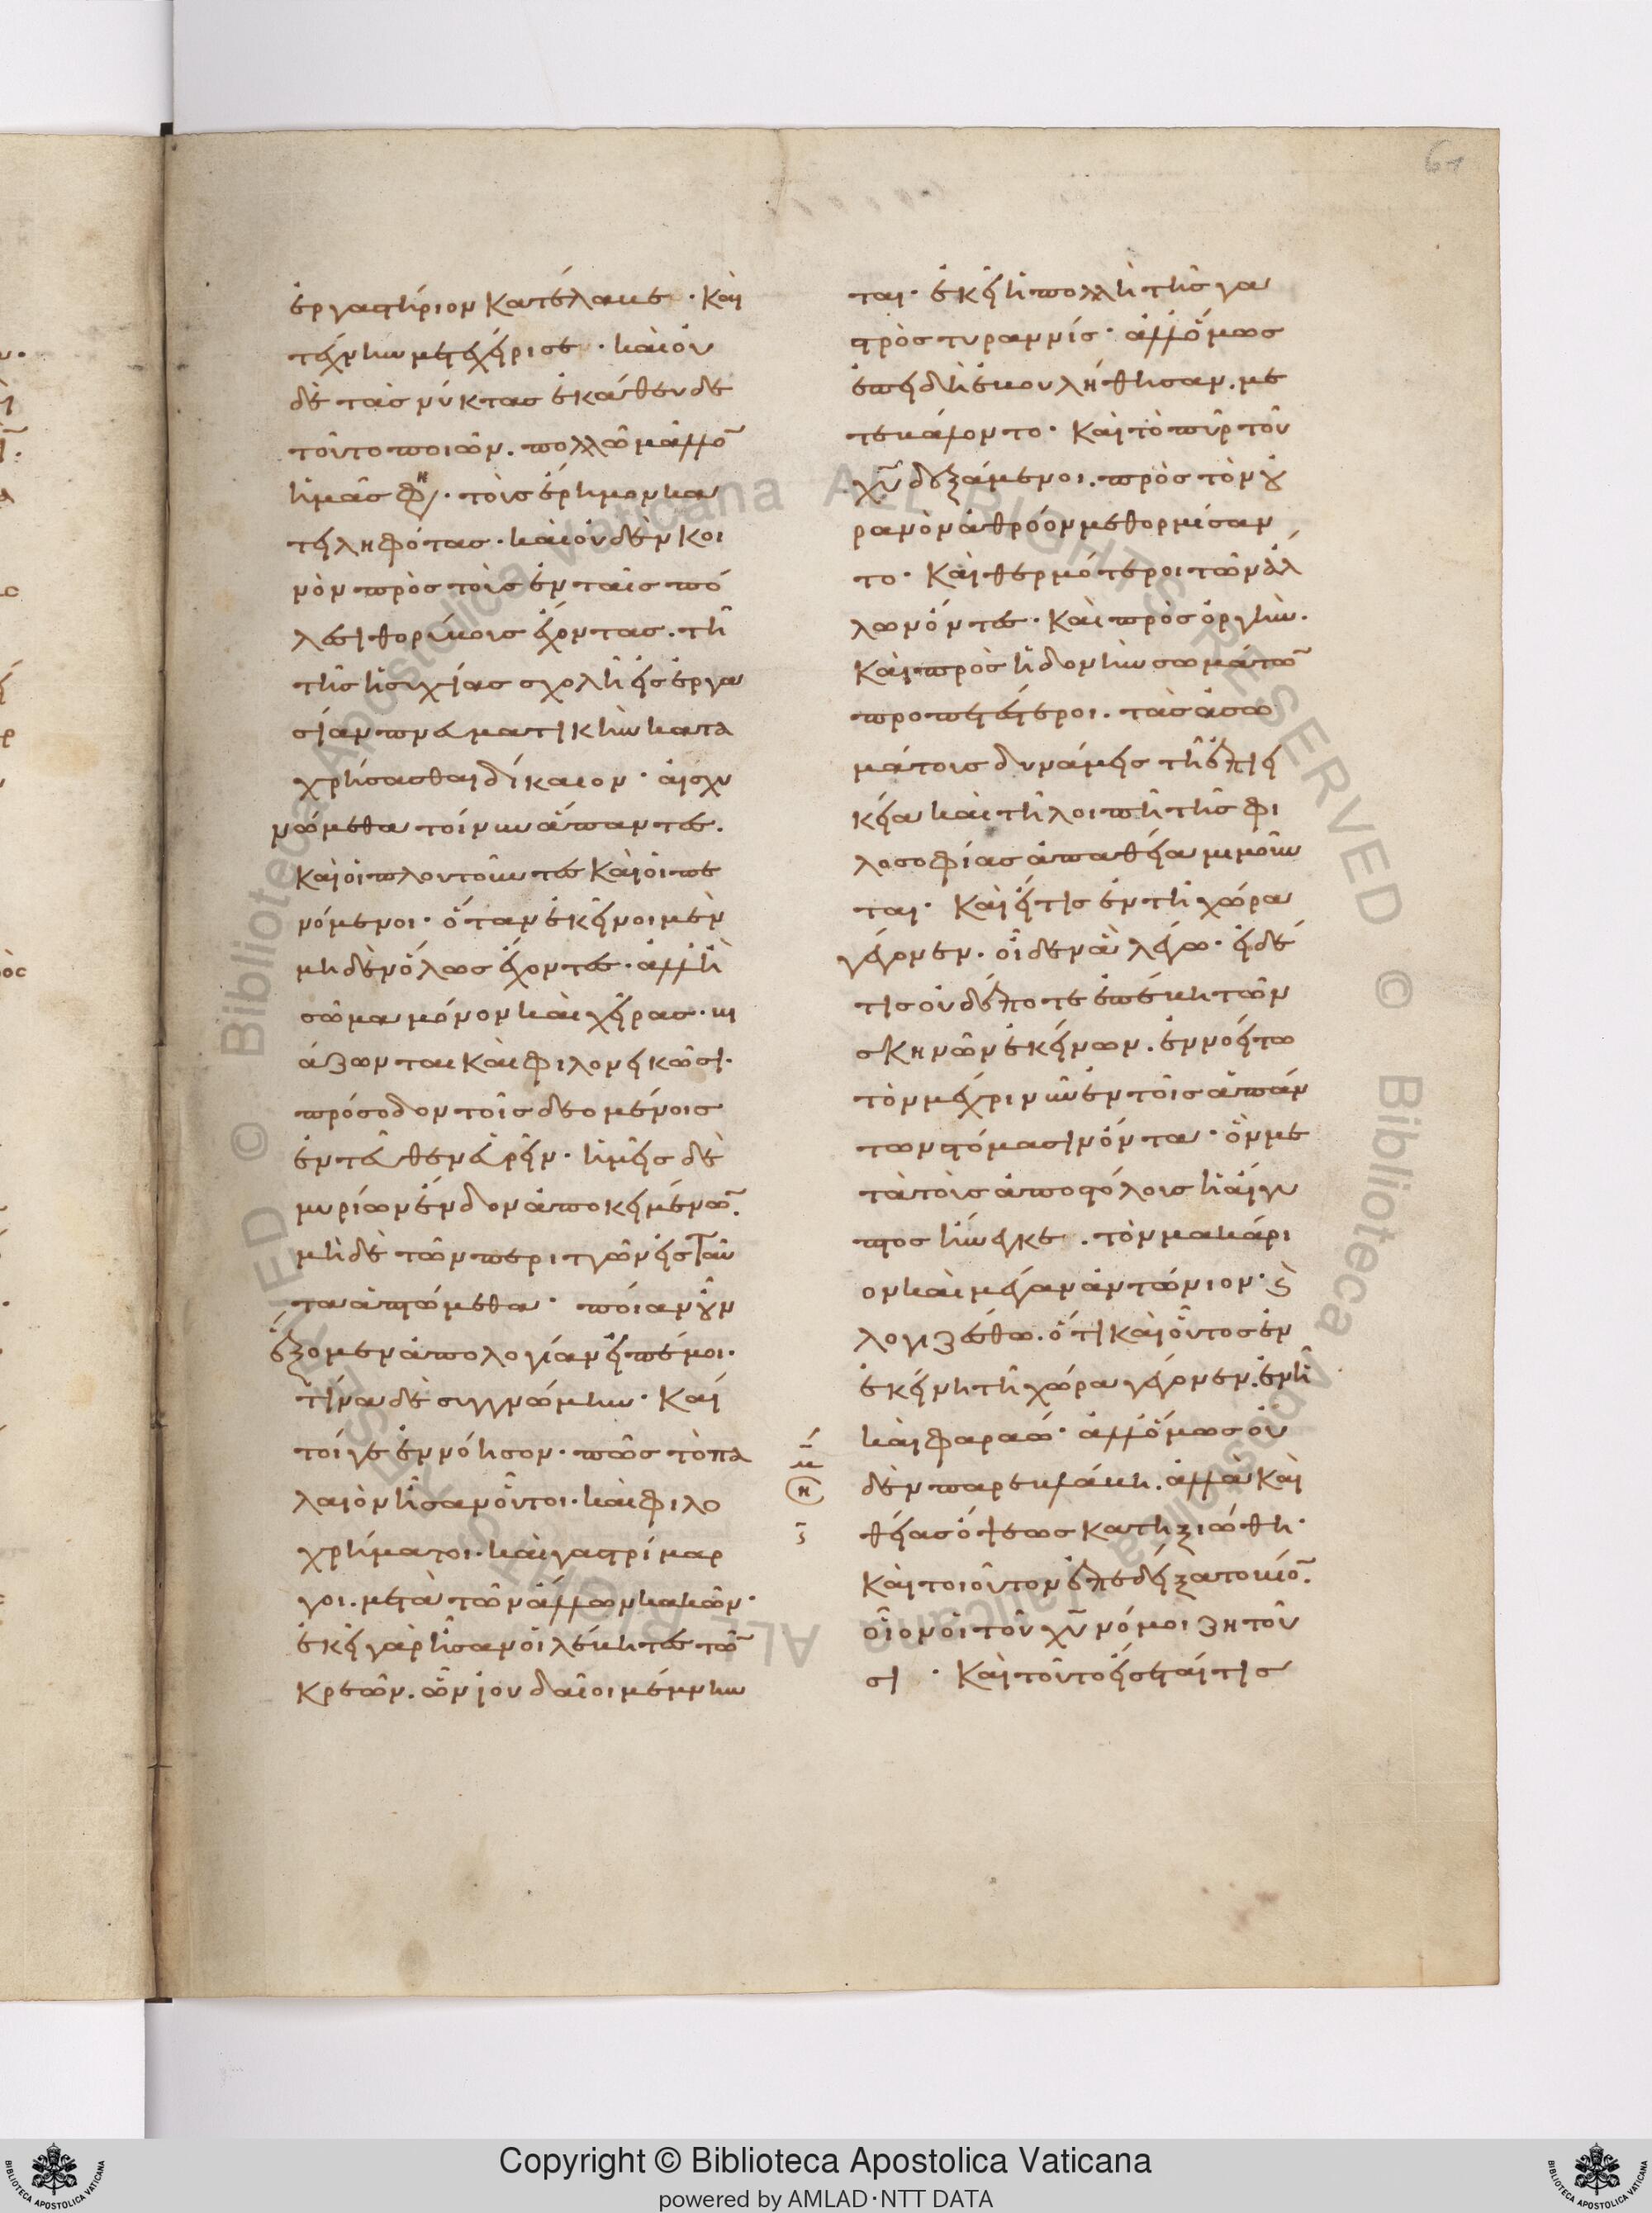 61
ἐργαστήριον κατέλαβε · καὶ
τέχνην μετεχείρισε · καὶ οὐ
δὲ τὰς νύκτας ἐκάθευδε
τοῦτο ποιῶν. πολλῶ μᾶλλο̃
ἡμᾶς φη · τοὺς ἔρημον κα
τειληφότας · καὶ οὐδὲν κοι
νὸν πρὸς τοὺς ἐν ταῖς πό
λεσι θορύβους ἔχοντας. τῆ
τῆς ἡσυχίας σχολῆ εἰς ἐργα
σίαν πνευματικὴν κατα
χρήσασθαι δίκαιον · αἰσχυ
νώμεθα τοίνυν ἅπαντες.
καὶ οἱ πλουτοῦντες καὶ οἱ πε
νόμενοι · ὅταν ἐκεῖνοι μὲν
μηδὲν ὅλως ἔχοντες · ἀλλ' ἢ
σῶμα μόνον καὶ χεῖρας · βι
άζωνται καὶ φιλονεικῶσι.
πρόσοδον τοῖς δεομένοις
ἐντεῦθεν εὑρεῖν · ἡμεῖς δὲ
μυρίων ἔνδον ἀποκειμένω̃.
μηδὲ τῶν περιττῶν εἰς ταῦ
τα ἁπτώμεθα · ποίαν οὖν
ἕξομεν ἀπολογίαν εἰπέ μοι.
τίνα δὲ συγγνώμην · καί
τοί γε ἐννόησον · πῶς τὸ πα
λαιὸν ἦσαν οὗτοι · καὶ φιλο
χρήματοι · καὶ γαστρίμαρ
γοι. μετὰ τῶν ἄλλων κακῶν ·
ἐκεῖ γὰρ ἦσαν οἱ λέβητες τῶ̃
κρεῶν. ὧν ἰουδαῖοι μέμνην
ται · ἐκεῖ ἡ πολλὴ τῆς γα
στρὸς τυραννίς · ἀλλ' ὅμως
ἐπειδὴ ἐβουλήθησαν. με
τεβάλοντο · καὶ τὸ πῦρ τοῦ
χ̅υ̅ δεξάμενοι. πρὸς τὸν οὐ
ρανὸν ἀθρόον μεθορμίσαν
το · καὶ θερμότεροι τῶν ἄλ
λων ὄντες · καὶ πρὸς ὀργὴν.
καὶ πρὸς ἡδονὴν σωμάτω̃
προπετέστεροι. τὰς ἀσω
μάτους δυνάμεις τῆ ἐπιει
κεία καὶ τῆ λοιπῆ τῆς φι
λοσοφίας ἀπαθεία μιμοῦν
ται · καὶ εἴ τις ἐν τῆ χώρα
γέγονεν. οἶδεν ἃ λέγω · εἰ δέ
τις οὐδέποτε ἐπέβη τῶν
σκηνῶν ἐκείνων. ἐννοείτω
τὸν μέχρι νῦν ἐν τοῖς ἁπάν
των στόμασιν ὄντα · ὃν με
τὰ τοὺς ἀποστόλους ἡ αἴγυ
πτος ἤνεγκε . τὸν μακάρι
ον καὶ μέγαν ἀντώνιον · καὶ
λογιζέσθω. ὅτι καὶ οὗτος ἐν
ἐκείνη τῆ χώρα γέγονεν. ἐν ἧ
καὶ φαραώ · ἀλλ' ὅμως οὐ
δὲν παρεβλάβη. ἀλλὰ καὶ
θείας ὄψεως κατηξιώθη ·
καὶ τοιοῦτον ἐπεδείξατο βίο̃.
οἷον οἱ τοῦ χ̅υ̅ νόμοι ζητοῦ
σι · καὶ τοῦτο εἴσεταί τις
Copyright © Biblioteca Apostolica Vaticana
powered by AMLAD·NTT DATA